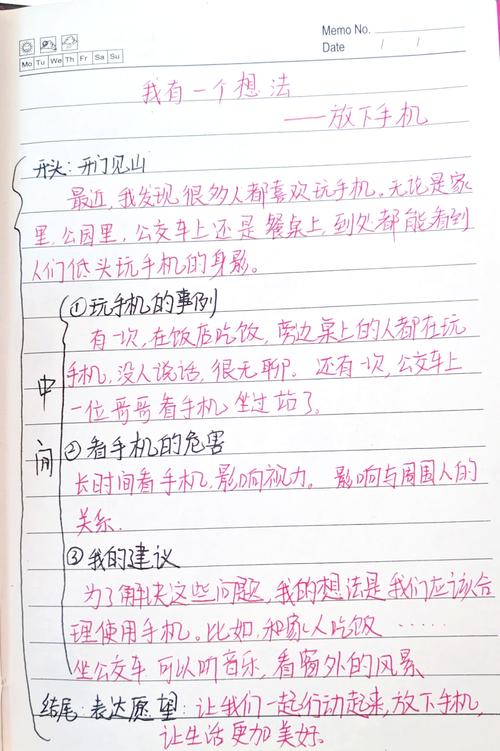 Memo No.
Date / /
Mo Tu We Th Fr Sa Su
我有一个想法
——放下手机
开头:开门见山
最近,我发现很多人都喜欢玩手机。无论是家
里,公园里,公交车上还是餐桌上,到处都能看到
人们低头玩手机的身影。
①玩手机的事例
有一次,在饭店吃饭,旁边桌上的人都在玩
手机,没人说话,很无聊。还有一次,公交车上
一位哥哥看手机坐过站了。
中间
②看手机的危害
长时间看手机,影响视力。影响与周围人的
关系.
③我的建议
为了解决这些问题,我的想法是我们应该合
理使用手机。比如,和家人吃饭……
坐公交车可以听音乐,看窗外的风景
结尾:表达愿望:让我们一起行动起来,放下手机,
让生活更加美好。